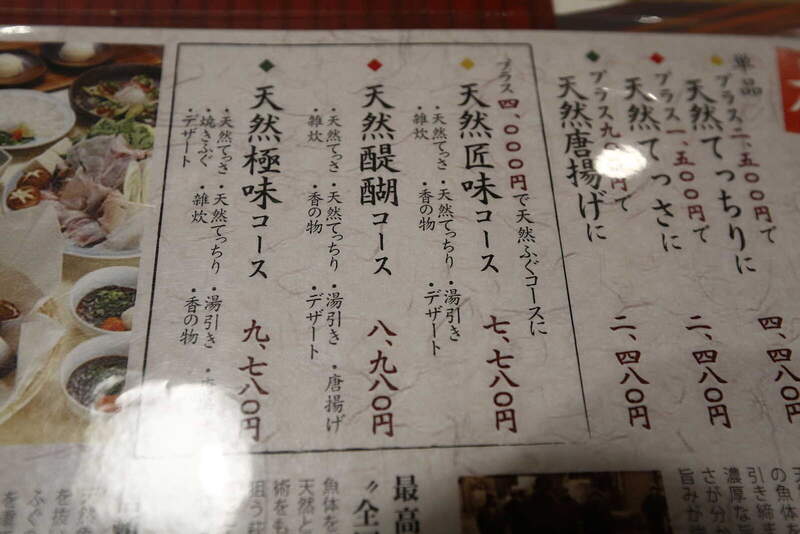 単品
プラス二、五〇〇円で
天然てっちりに
四、四八〇円
プラス一、五〇〇円で
天然てっさに
二、四八〇円
プラス九〇〇円で
天然唐揚げに
二、四八〇円
プラス四、〇〇〇円で天然ふぐコースに
天然匠味コース
七、七八〇円
・天然てっさ ・天然てっちり ・湯引き
・雑炊 ・香の物 ・デザート
天然醍醐コース
八、九八〇円
・天然てっさ ・天然てっちり ・湯引き ・唐揚げ
・雑炊 ・香の物 ・デザート
天然極味コース
九、七八〇円
・天然てっさ ・天然てっちり ・湯引き
・焼きふぐ ・雑炊 ・香の物
・デザート
の魚体を
引き締ま
濃厚な旨
さが分か
旨みが
最高
〝全
魚体を
天然と
術をも
狙う